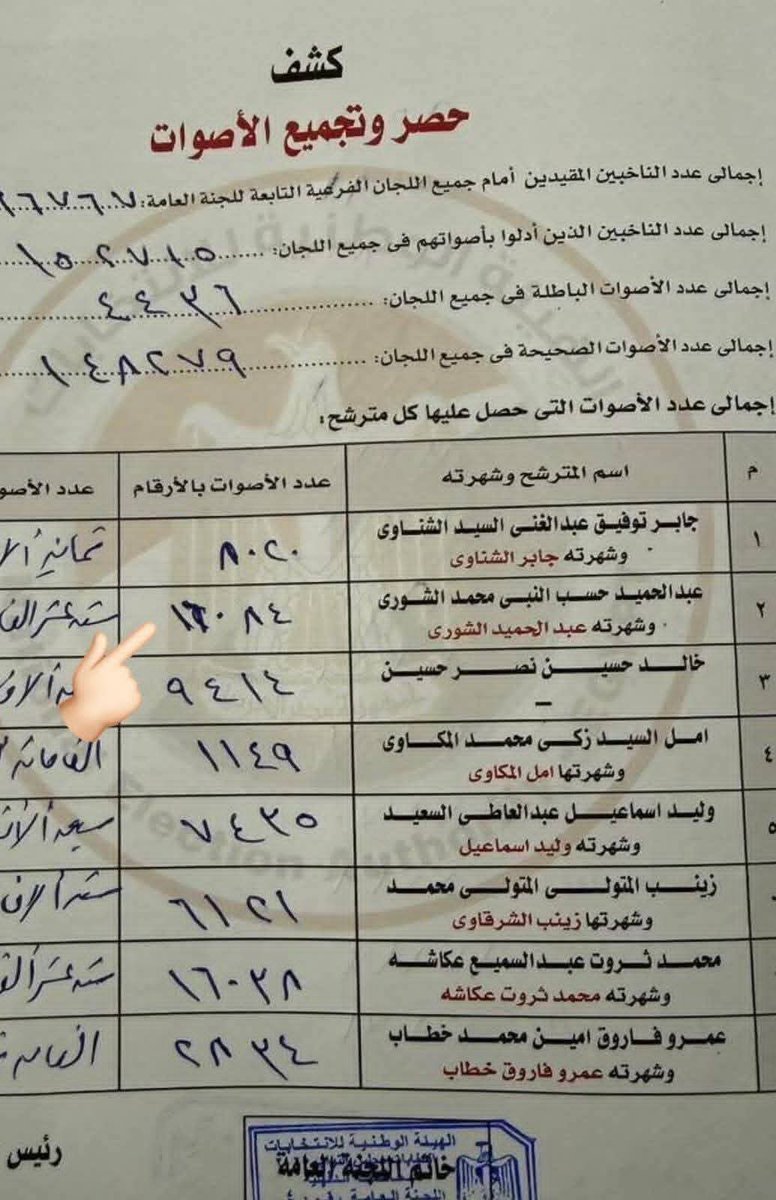 كشف
حصر وتجميع الأصوات
إجمالى عدد الناخبين المقيدين أمام جميع اللجان الفرعية التابعة للجنة العامة: ٦٧٦٧
إجمالى عدد الناخبين الذين أدلوا بأصواتهم فى جميع اللجان: ١٥٢٧١٥
إجمالى عدد الأصوات الباطلة فى جميع اللجان: ٤٤٣٦
إجمالى عدد الأصوات الصحيحة فى جميع اللجان: ١٤٨٢٧٩
إجمالى عدد الأصوات التى حصل عليها كل مترشح:
م اسم المترشح وشهرته عدد الأصوات بالأرقام عدد الأصو
١ جابر توفيق عبدالغنى السيد الشناوى ٨٠٢٠ ثمانية ألا
وشهرته جابر الشناوى
٢ عبدالحميد حسب النبى محمد الشورى ١٦٠٨٤ ستة عشر الفا
وشهرته عبد الحميد الشورى
٣ خالد حسين نصر حسين ٩٤١٤
–
٤ امل السيد زكى محمد المكاوى ١١٤٩
وشهرتها امل المكاوى
٥ وليد اسماعيل عبدالعاطى السعيد ٧٤٣٥ سبعة ألا
وشهرته وليد اسماعيل
زينب المتولى المتولى محمد ٦١٢١ ستة ألاف
وشهرتها زينب الشرقاوى
محمد ثروت عبدالسميع عكاشه ١٦٠٣٨ ستة عشر ألف
وشهرته محمد ثروت عكاشه
عمرو فاروق امين محمد خطاب ٢٨٣٤ الفان
وشهرته عمرو فاروق خطاب
رئيس
الهيئة الوطنية للانتخابات
خاتم اللجنة العامة